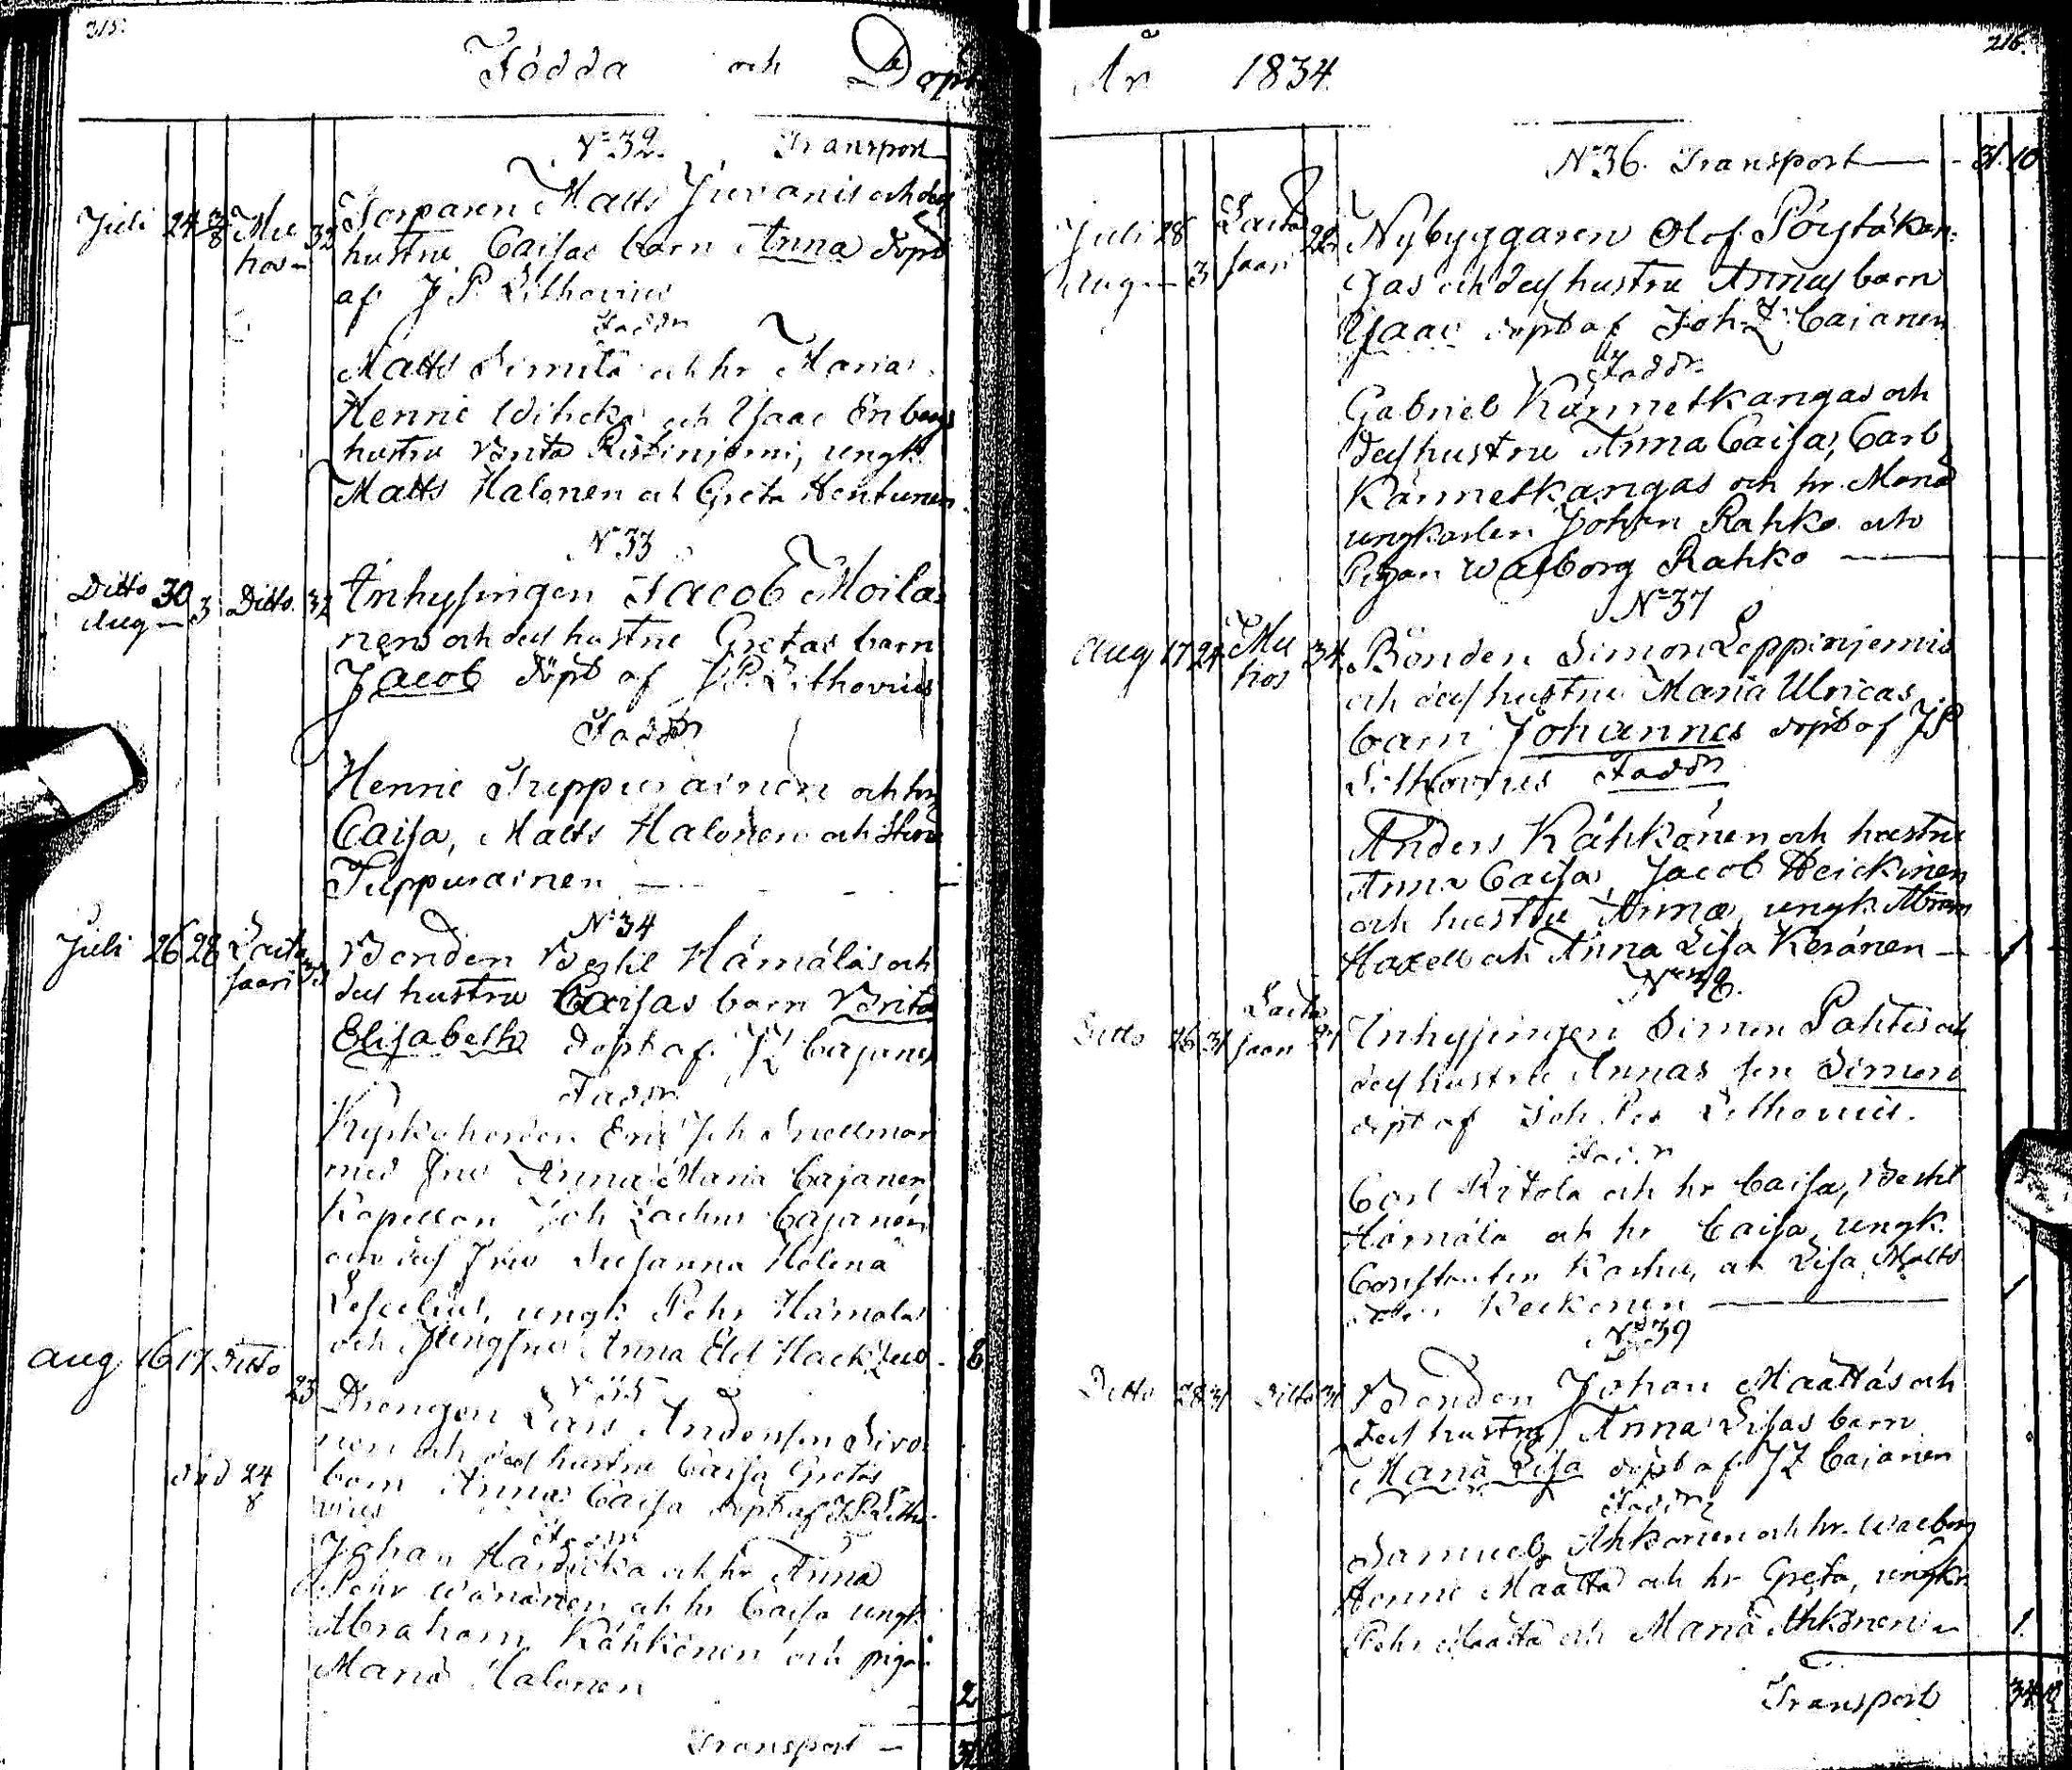 315.
Födda och Döpt
N° 32. Transport
Juli 24 3/8 Mu 32 Torparen Matts Juvanis och dess
hos hustru Caisas barn Anna döpt
af J P. Lithovius
Faddr
Matts Simila och hr Maria
Henric och Isaac Enbergs
hustru Brita Ristinjemi, ungk.
Matts Halonen och Greta Hentunen
N° 33
Ditto 30 Ditto 32 Inhysingen Jacob Moila
Aug 3 nens och dess hustru Gretas barn
Jacob döpt af J P. Lithovius
Faddr
Henric Tuppurainen och hr
Caisa, Matts Halonen och
Tuppurainen
N° 34
Juli 26 28 Laita Bonden Bertil Hämäläs och
saari dess hustru Caisas barn Brita
Elisabeth döpt af J Z Cajanus
Faddr
Kyrkoherden Eric Joh Snellman
med Fru Anna Maria Cajanen
Kapellan Joh Zachris Cajanen
och dess Fru Susanna Helena
ungk. Pehr Hämälä
och Jungfru Anna Elis 6
N° 35
Aug 16 17 Ditto 23 Drengen Lars Andersson
nen och dess hustru Caisa Gretas
död 24 barn Anna Caisa döpt af J P Litho
8 vius
Faddr
Johan och hr Anna
Pehr Wänänen och hr Caisa ungk.
Abraham Kähkönen och pigan
Maria Halonen
2
Transport — 31
216.
År 1834.
N° 36. Transport — 31. 10
Juli 28 Laita 28 Nybyggaren Olof Pöystökan-
Aug 3 saari gas och dess hustru Annas barn
Isaac döpt af Joh Z Cajanen
Faddr
Gabriel Kärmetkangas och
dess hustru Anna Caisa, Carl
Kärmetkangas och hr. Maria
ungkarlen Johan Rahko och
Pigan Walborg Rahko
N° 37
Aug 17 24 Mu 34 Bonden Simon Leppiniemis
hos och dess hustru Maria Ulricas
barn Johannes döpt af J P
Lithovius Faddr
Anders Kähkönen och hustru
Anna Caisa, Jacob Heickinen
och hustru Anna, ungk. Abram
Haxell och Anna Lisa Keränen — 1
N° 38.
Ditto 26 31 Laita Inhysingen Simon Pahtis och
saari dess hustru Annas son Simon
döpt af Joh. Per Lithovius.
Faddr
Carl Ritola och hr Caisa, Bertil
Hämälä och hr Caisa, ungk.
Constantin och Lisa Matts
1
N° 39
Ditto 28 31 Ditto 31 Bonden Johan Määttäs och
dess hustru Anna Lisas barn
Maria Lisa döpt af J Z Cajanen
Faddr
Samuel Ahkonen och hr. Walborg
Henric Määttä och hr Greta, ungkr
Pehr Määttä och Maria Ahkonen — 1.
Transport 34. 10